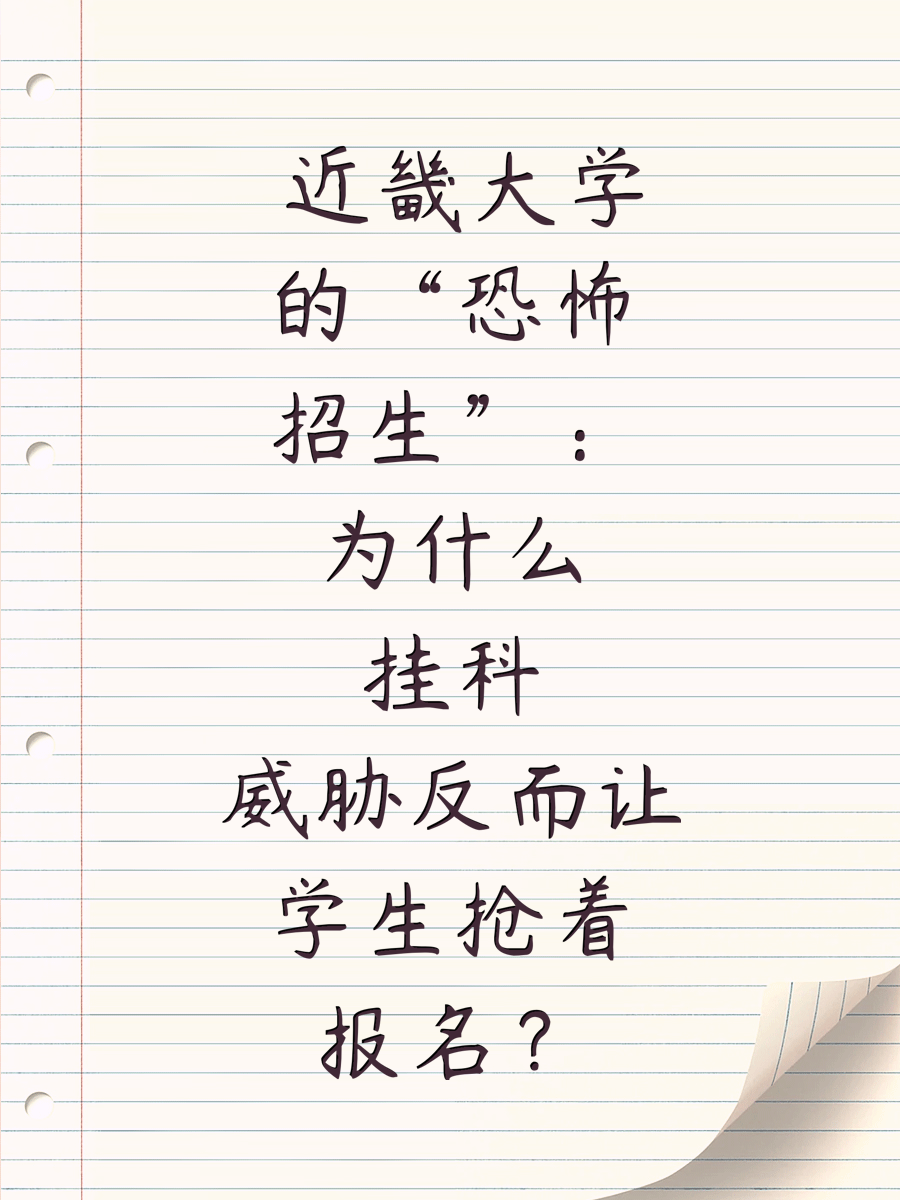 近畿大学
的“恐怖
招生”:
为什么
挂科
威胁反而让
学生抢着
报名?